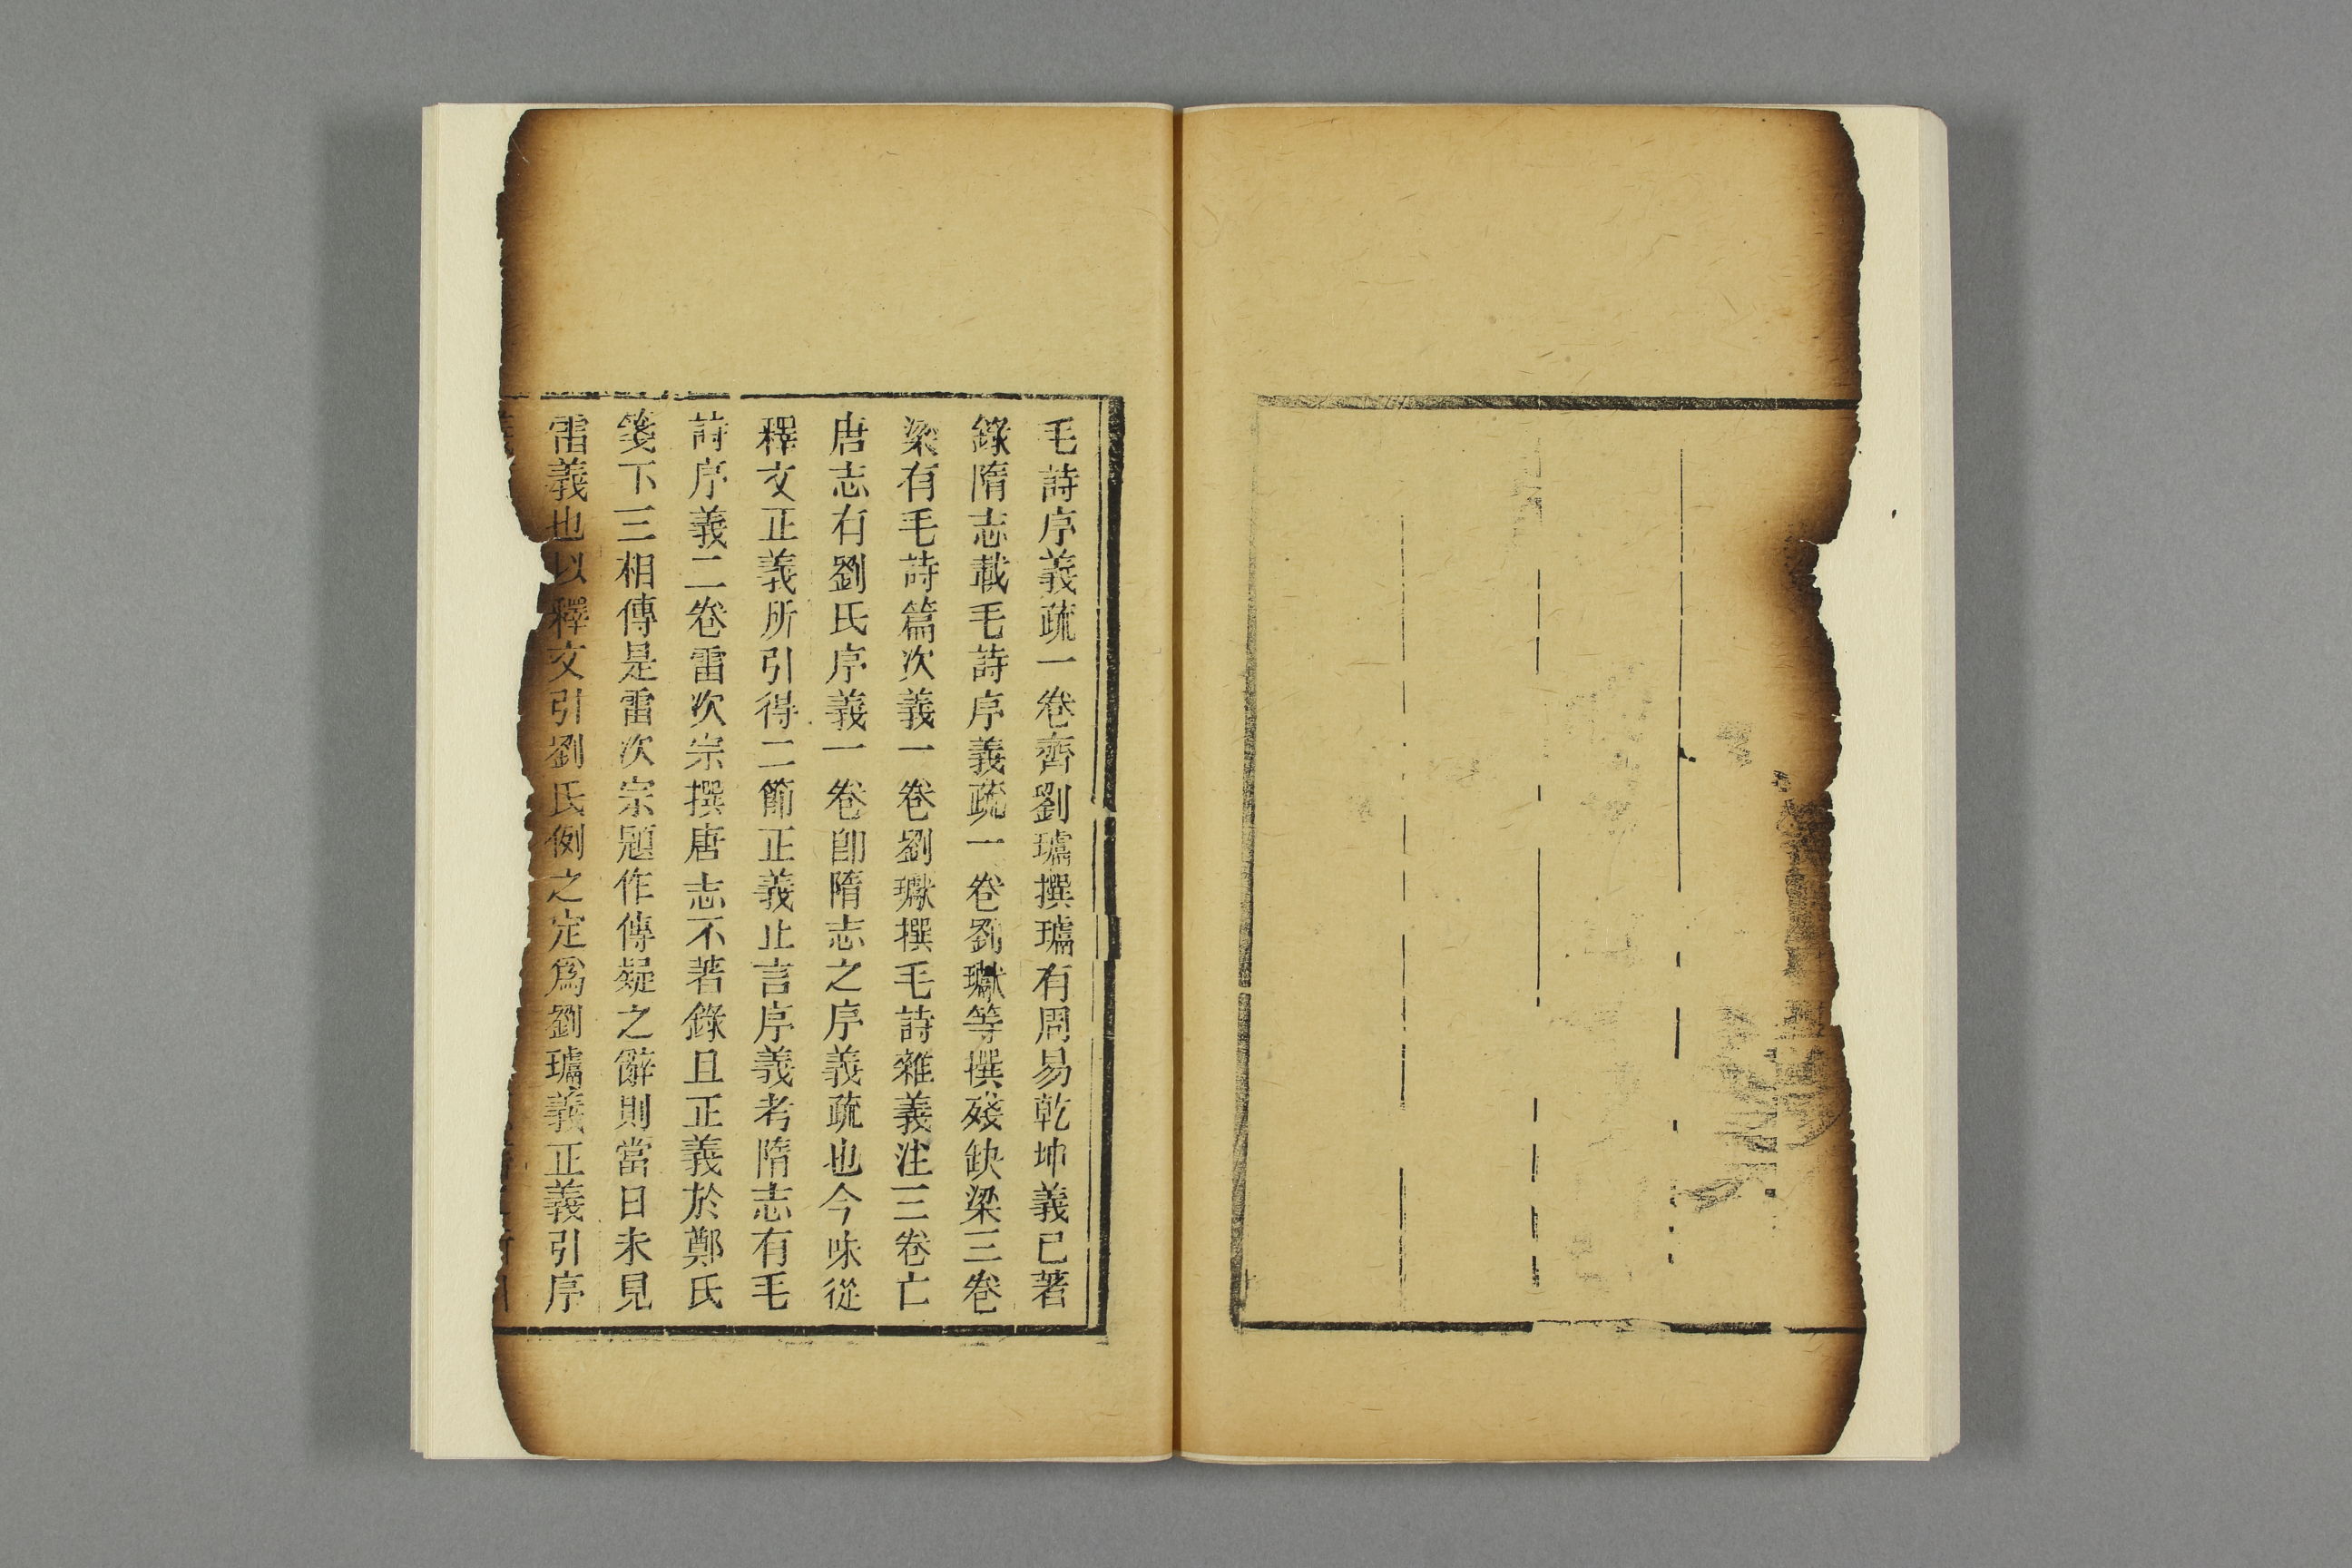 毛詩序義疏一卷齊劉瓛撰瓛有周易乾坤義已著
錄隋志載毛詩序義疏一卷劉瓛等撰殘缺梁三卷
梁有毛詩篇次義一卷劉瓛撰毛詩雜義注三卷亡
唐志有劉氏序義一卷卽隋志之序義疏也今味從
釋文正義所引得二節正義止言序義考隋志有毛
詩序義二卷雷次宗撰唐志不著錄且正義於鄭氏
箋下三相傳是雷次宗題作傳疑之辭則當日未見
雷義也以釋文引劉氏例之定爲劉瓛義正義引序